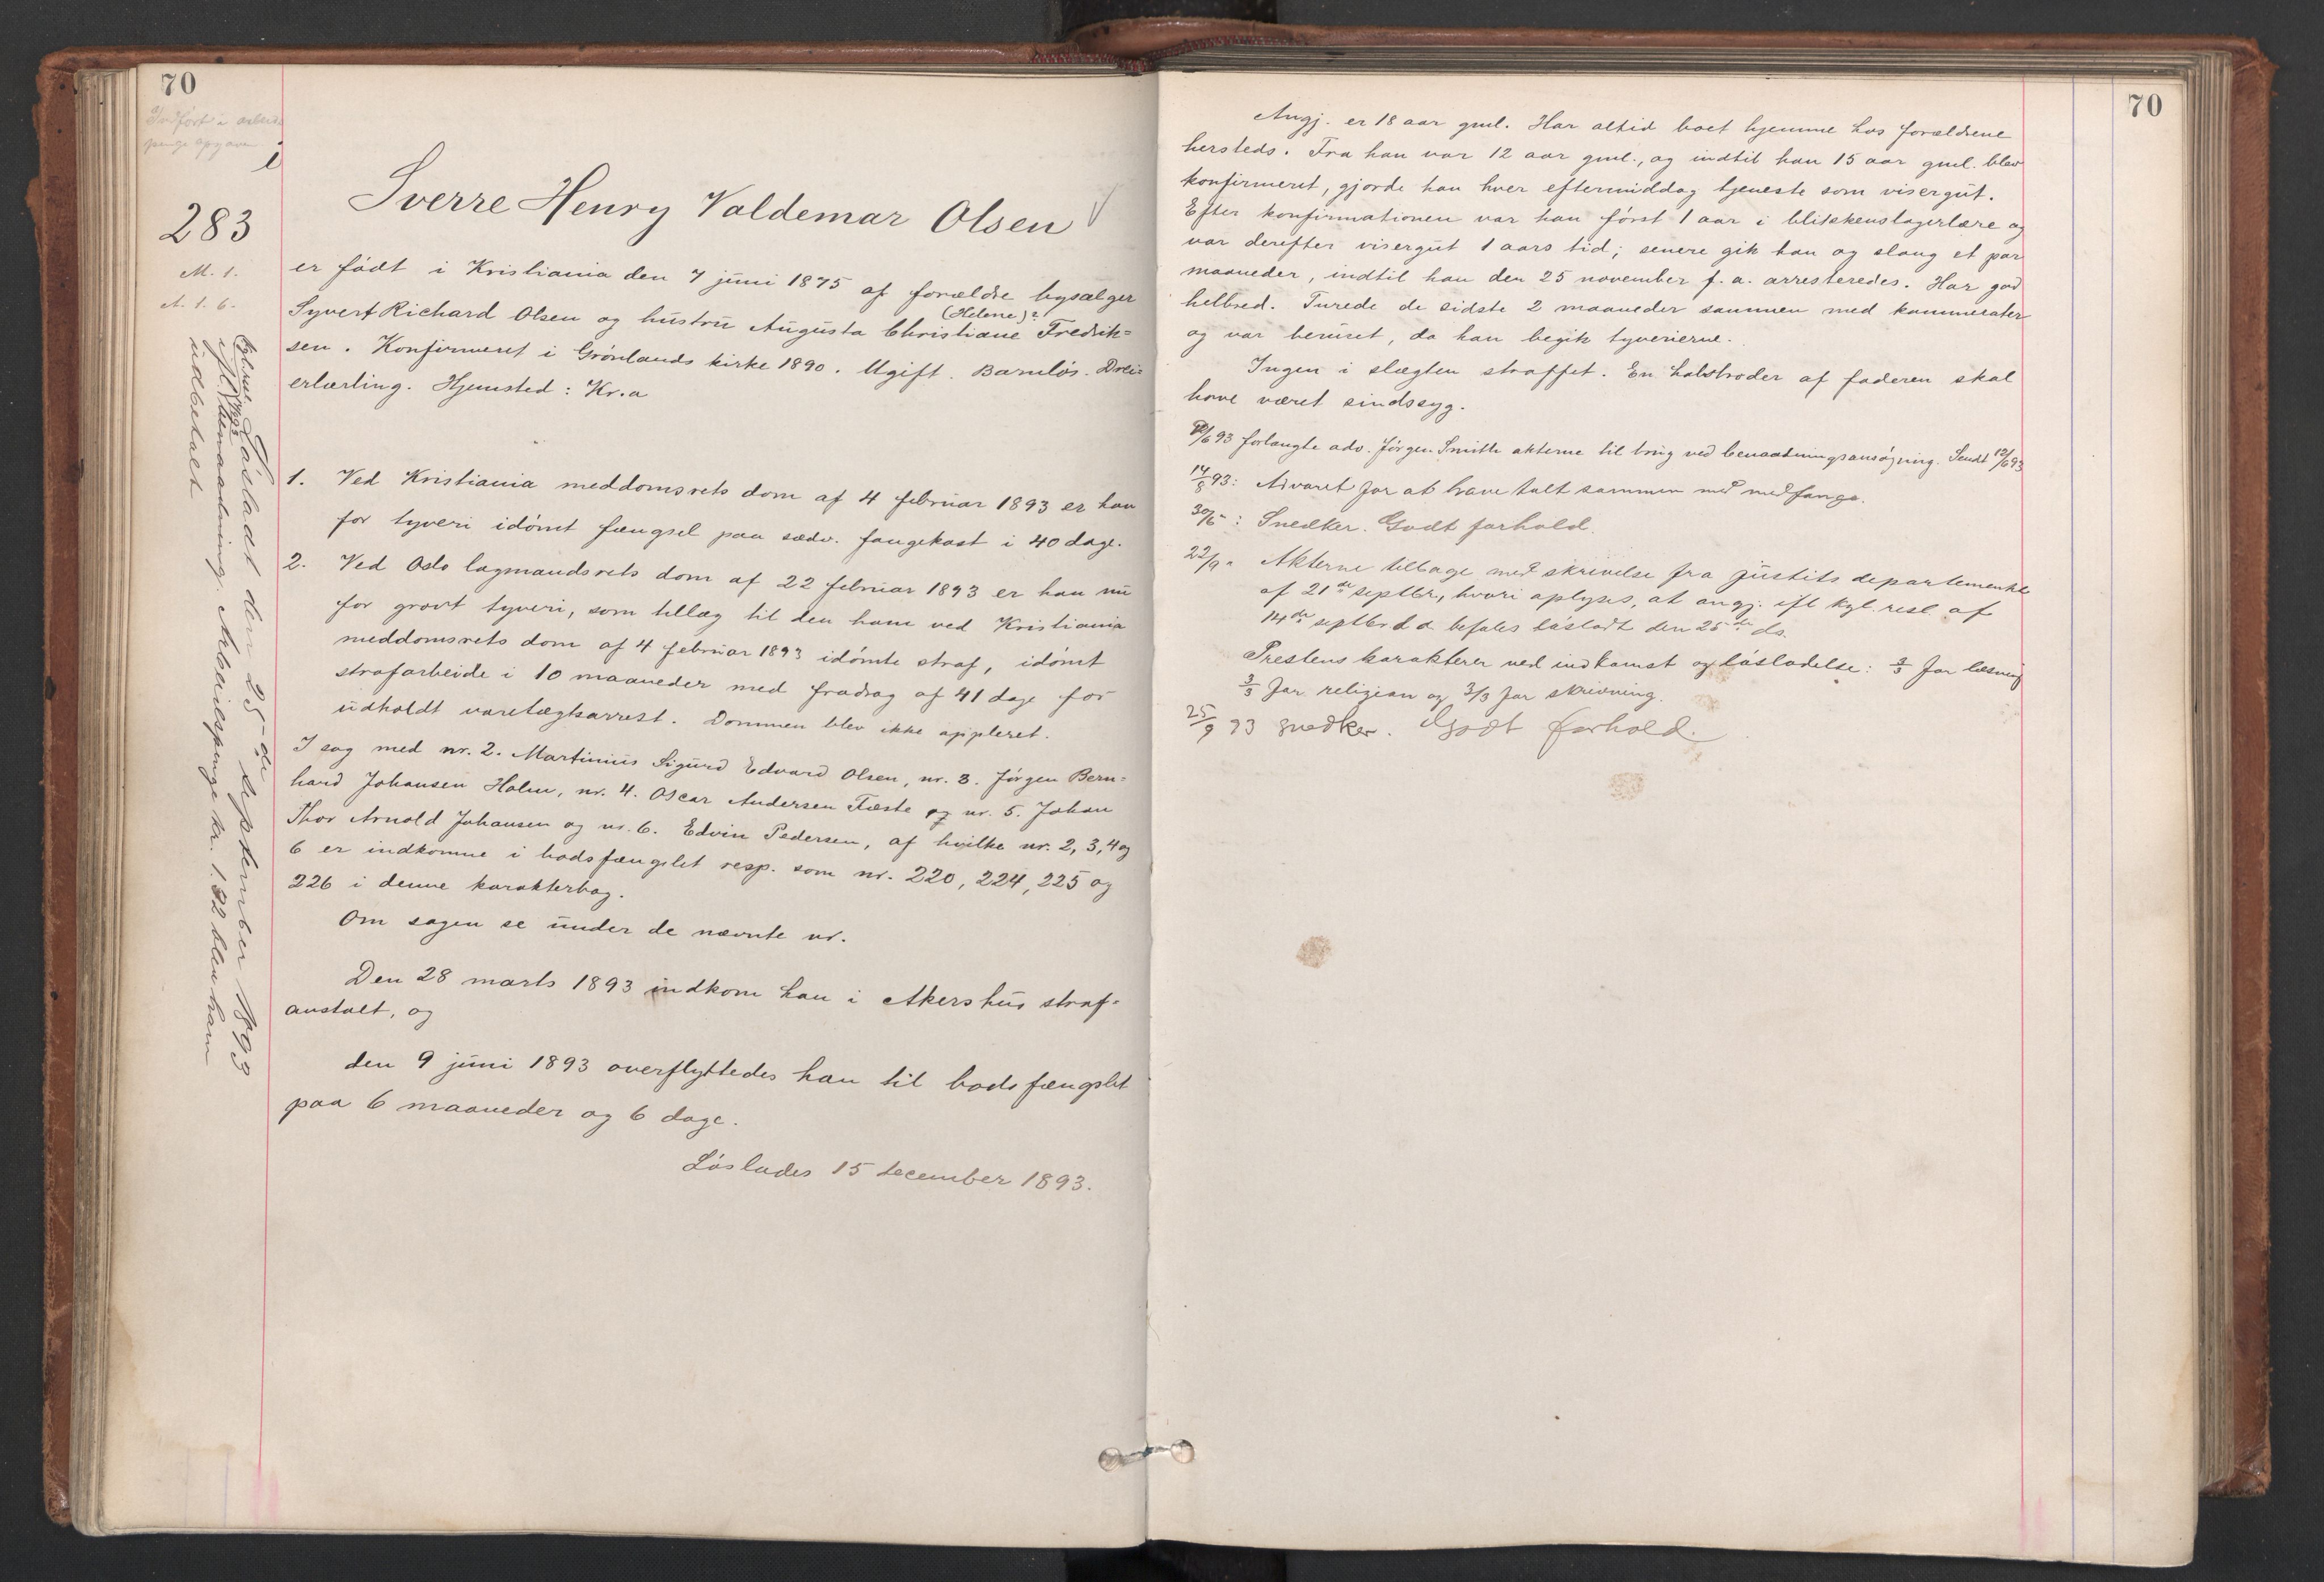 70
Indført i arbeids
penge opgave
283
M. 1.
A. 1. 6.
Sverre Henry Valdemar Olsen
er født i Kristiania den 7 juni 1875 af forældre bysælger
(Helene)?
Syvert Richard Olsen og hustru Augusta Christiane Fredrik=
sen. Konfirmeret i Grønlands kirke 1890. Ugift. Barnløs. Drei=
erlærling. Hjemsted: Kr.a
1. Ved Kristiania meddomsrets dom af 4 februar 1893 er han
for tyveri idømt fængsel paa sædv. fangekost i 40 dage.
2. Ved Oslo lagmandsrets dom af 22 februar 1893 er han nu
for grovt tyveri, som tillæg til den ham ved Kristiania
meddomsrets dom af 4 februar 1893 idømte straf, idømt
strafarbeide i 10 maaneder med fradrag af 41 dage for
udholdt varetægtsarrest. Dommen blev ikke appleret.
I sag med nr. 2. Martinius Sigurd Edvard Olsen, nr. 3. Jørgen Bern=
hard Johansen Holm, nr. 4. Oscar Andersen Fæste og nr. 5. Johan
Thor Arnold Johansen og nr. 6. Edvin Pedersen, af hvilke nr. 2, 3, 4 og
6 er indkomne i bodsfængslet resp. som nr. 220, 224, 225 og
226 i denne karakterbog.
Om sagen se under de nævnte nr.
Den 28 marts 1893 indkom han i Akershus straf=
anstalt, og
den 9 juni 1893 overflyttedes han til bodsfængslet
paa 6 maaneder og 6 dage.
Løslades 15 december 1893.
Løsladt den 25de september 1893
ifl. benaadning. Arbeidspenge kr. 1.82 blev ham
udbetalt
70
Angj. er 18 aar gml. Har altid boet hjemme hos forældrene
hersteds. Fra han var 12 aar gml., og indtil han 15 aar gml. blev
konfirmeret, gjorde han hver eftermiddag tjeneste som visergut.
Efter konfirmationen var han først 1 aar i blikkenslagerlære og
var derefter visergut 1 aars tid; senere gik han og slang et par
maaneder, indtil han den 25 november f. a. arresteredes. Har god
helbred. Turede de sidste 2 maaneder sammen med kammerater
og var beruset, da han begik tyverierne.
Ingen i slægten straffet. En halvbroder af faderen skal
have været sindssyg.
12/6 93 forlangte adv. Jørgen Smith akterne til brug ved benaadningsansøgning. Sendt 12/6 93
14/8 93: Advaret for at have talt sammen med medfange.
30/6 " : Snedker. Godt forhold.
22/9 " Akterne tilbage med skrivelse fra justits departementet
af 21de septbr, hvori oplyses, at angj. ifl kgl. resl. af
14de septbr d. a. befales løsladt den 25de ds.
Prestens karakterer ved indkomst og løsladelse: 2/3 for læsning
3/3 for religion og 3/3 for skrivning.
25/9 93 snedker. Godt forhold.